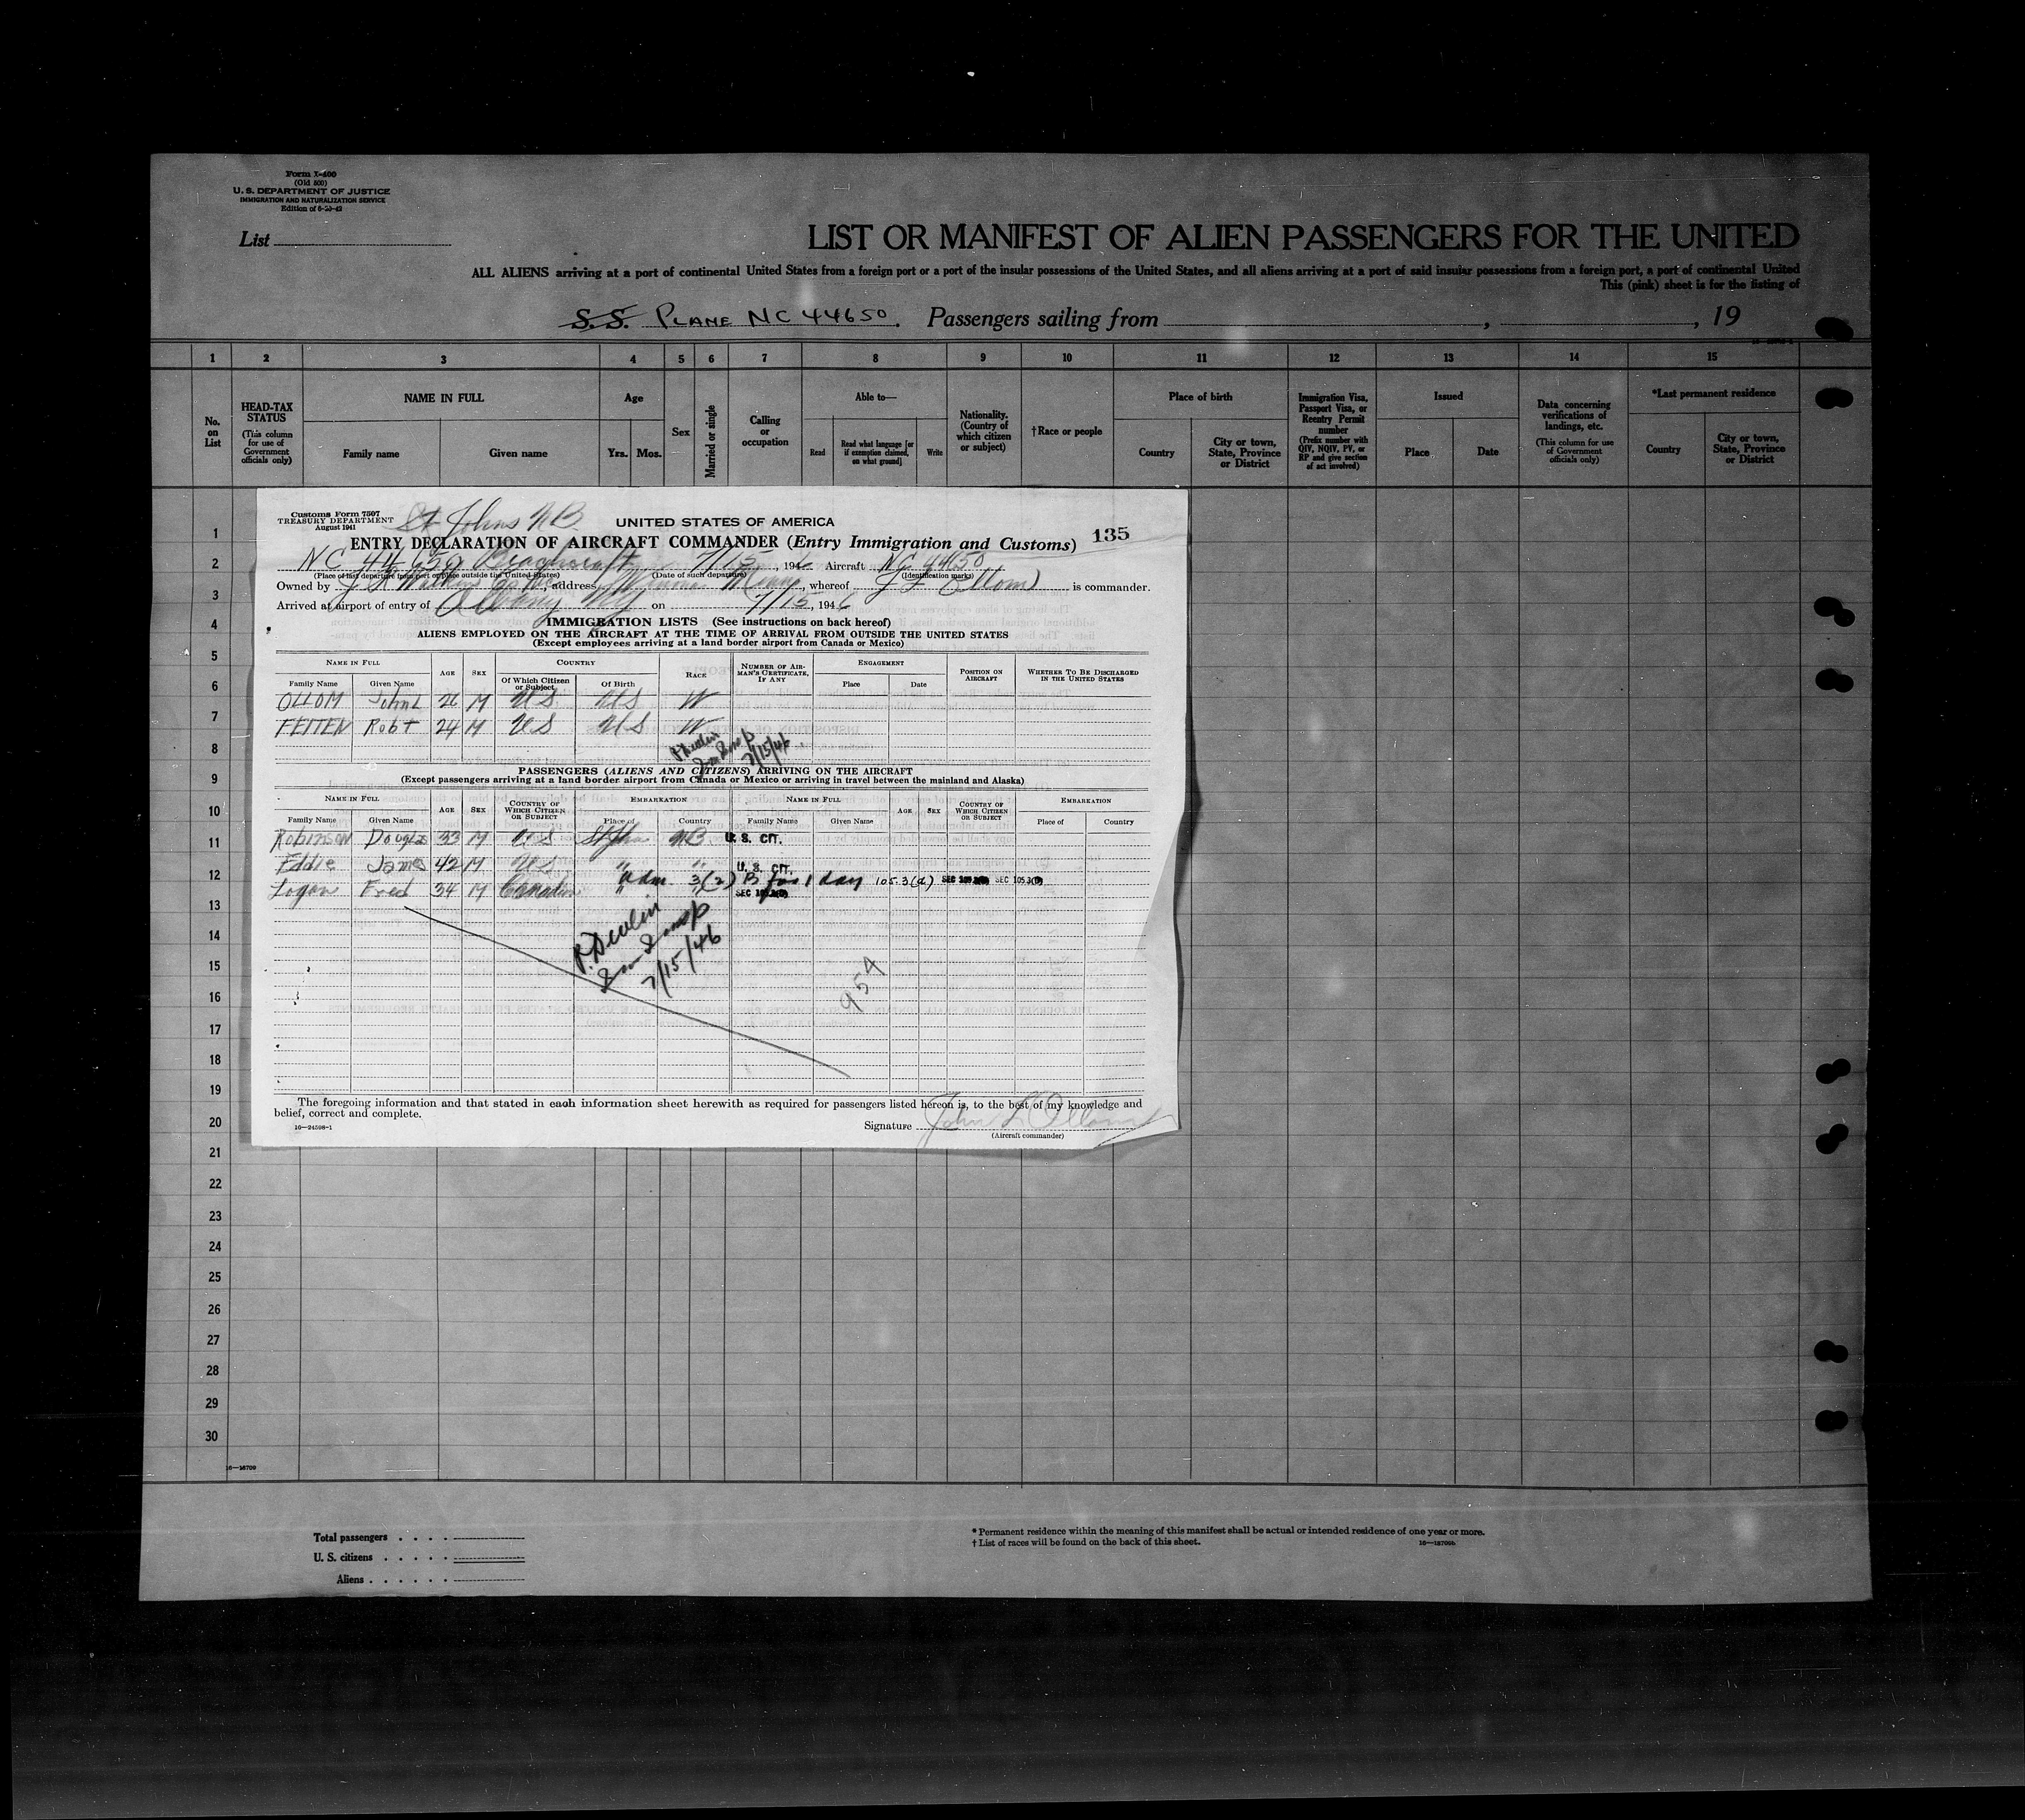 Form I-400
(Old 500)
U. S. DEPARTMENT OF JUSTICE
IMMIGRATION AND NATURALIZATION SERVICE
Edition of 6-20-42
List
LIST OR MANIFEST OF ALIEN PASSENGERS FOR THE UNITED
ALL ALIENS arriving at a port of continental United States from a foreign port or a port of the insular possessions of the United States, and all aliens arriving at a port of said insular possessions from a foreign port, a port of continental United
This (pink) sheet is for the listing of
S.S. PLANE NC 44650. Passengers sailing from , , 19
1 2 3 4 5 6 7 8 9 10 11 12 13 14 15
No. on List
HEAD-TAX STATUS
(This column for use of Government officials only)
NAME IN FULL
Family name Given name
Age
Yrs. Mos.
Sex
Married or single
Calling or occupation
Able to—
Read Read what language [or if exemption claimed, on what ground] Write
Nationality. (Country of which citizen or subject)
†Race or people
Place of birth
Country City or town, State, Province or District
Immigration Visa, Passport Visa, or Reentry Permit number
(Prefix number with QIV, NQIV, PV, or RP and give section of act involved)
Issued
Place Date
Data concerning verifications of landings, etc.
(This column for use of Government officials only)
*Last permanent residence
Country City or town, State, Province or District
Customs Form 7507
TREASURY DEPARTMENT
August 1941
St Johns NB
UNITED STATES OF AMERICA
135
ENTRY DECLARATION OF AIRCRAFT COMMANDER (Entry Immigration and Customs)
NC 44650 Beachcraft, 7/15, 1946 Aircraft NC 44650
(Place of last departure from port or place outside the United States) (Date of such departure) (Identification marks)
Owned by address Winona Minn, whereof Ollom is commander.
Arrived at airport of entry of Albany NY on 7/15, 1946
IMMIGRATION LISTS (See instructions on back hereof)
ALIENS EMPLOYED ON THE AIRCRAFT AT THE TIME OF ARRIVAL FROM OUTSIDE THE UNITED STATES
(Except employees arriving at a land border airport from Canada or Mexico)
NAME IN FULL AGE SEX COUNTRY RACE NUMBER OF AIRMAN'S CERTIFICATE, IF ANY ENGAGEMENT POSITION ON AIRCRAFT WHETHER TO BE DISCHARGED IN THE UNITED STATES
Family Name Given Name Of Which Citizen or Subject Of Birth Place Date
OLLOM John L 26 M US US W
FEITEN Robt 24 M US US W
P. Devlin
Imm Insp
7/15/46
PASSENGERS (ALIENS AND CITIZENS) ARRIVING ON THE AIRCRAFT
(Except passengers arriving at a land border airport from Canada or Mexico or arriving in travel between the mainland and Alaska)
NAME IN FULL AGE SEX COUNTRY OF WHICH CITIZEN OR SUBJECT EMBARKATION NAME IN FULL AGE SEX COUNTRY OF WHICH CITIZEN OR SUBJECT EMBARKATION
Family Name Given Name Place of Country Family Name Given Name Place of Country
Robinson Douglas 33 M US St John NB U. S. CIT.
Eddie James 42 M US " " U. S. CIT.
Logan Fred 34 M Canadian " "
adm 3(2) B for 1 day 105.3(a)
P. Devlin
Imm Insp
7/15/46
954
The foregoing information and that stated in each information sheet herewith as required for passengers listed hereon is, to the best of my knowledge and
belief, correct and complete.
16—24598-1
Signature John L Ollom
(Aircraft commander)
1
2
3
4
5
6
7
8
9
10
11
12
13
14
15
16
17
18
19
20
21
22
23
24
25
26
27
28
29
30
16—18709
Total passengers
U. S. citizens
Aliens
* Permanent residence within the meaning of this manifest shall be actual or intended residence of one year or more.
† List of races will be found on the back of this sheet.